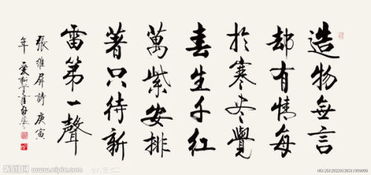 造物無言
却有情每
於寒盡覺
春生千紅
萬紫安排
著只待新
雷第一聲
張維屏詩庚寅
年